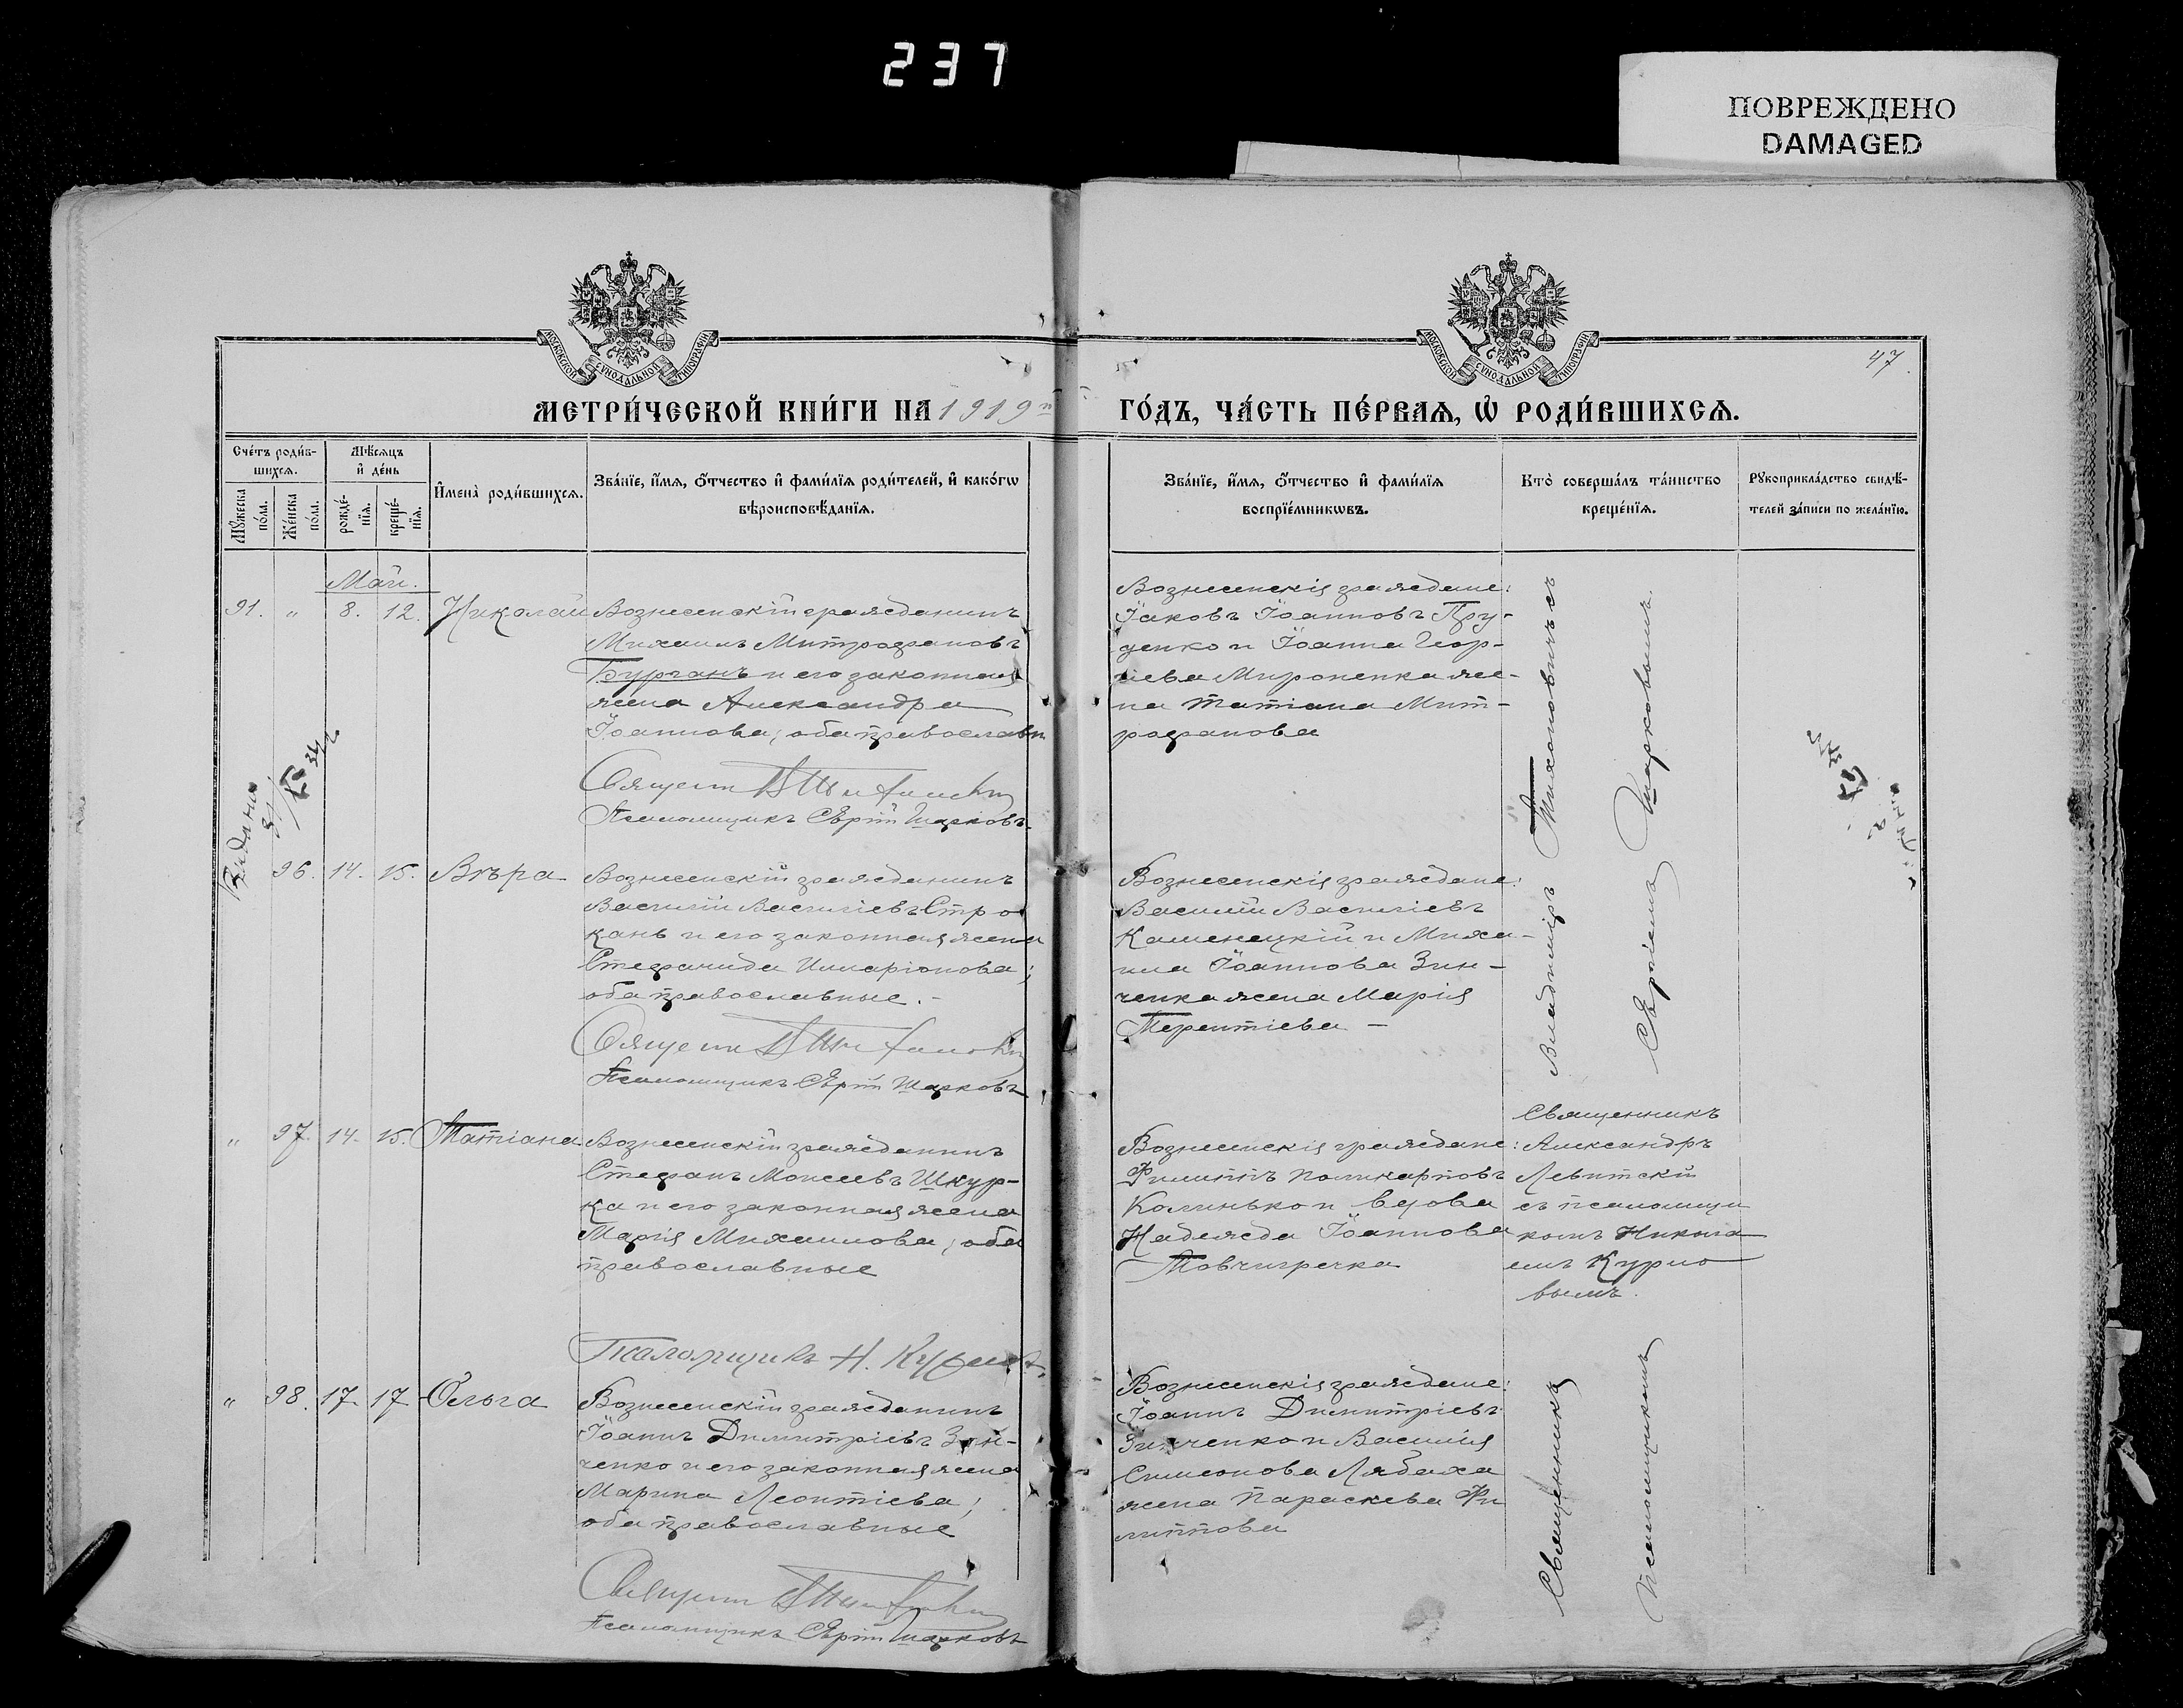 237
ПОВРЕЖДЕНО
DAMAGED
МОСКОВСКОЙ СѴНОДАЛЬНОЙ ТИПОГРАФІИ
МОСКОВСКОЙ СѴНОДАЛЬНОЙ ТИПОГРАФІИ
47.
МЕТРИ́ЧЕСКОЙ КНИ́ГИ НА 1919 й
ГО́ДЪ, ЧА́СТЬ ПЕ́РВАѦ, Ѡ҆ РОДИ́ВШИХСѦ.
Сче́тъ роди́в-
шихсѧ.
Мꙋ́жеска по́ла.
Же́нска по́ла.
Мѣ́сѧцъ
и҆ де́нь
рожде́-нїѧ.
креще́-нїѧ.
И҆мена̀ роди́вшихсѧ.
Зва́нїе, и҆́мѧ, ѻ҆́тчество и҆ фами́лїѧ роди́телей, и҆ како́гѡ
вѣроисповѣ́данїѧ.
Зва́нїе, и҆́мѧ, ѻ҆́тчество и҆ фами́лїѧ
воспрїе́мникѡвъ.
Кто̀ соверша́лъ та́инство
креще́нїѧ.
Рꙋкоприкла́дство свидѣ́-
телей за́писи по жела́нїю.
Май.
91. " 8. 12. Николай
Вознесенскій гражданинъ
Михаилъ Митрофановъ
Бурганъ и его законная
жена Александра
Іоаннова; оба православн
Священ
Псаломщикъ Сергій Шарковъ
Вознесенскія граждане:
Іаковъ Іоанновъ Пру-
денко и Іоанна Геор-
гіева Мироненка же-
на Татіана Мит-
рофанова
Видано
96. 14. 15. Вѣра
Вознесенскій гражданинъ
Василій Василіевъ Стро
кань и его законная жена
Стефанида Иларіонова;
оба православные. -
Священ
Псаломщикъ Сергій Шарковъ
Вознесенскія граждане:
Василій Василіевъ
Каменецкій и Миха-
ила Іоаннова Зин-
ченка жена Марія
Терентіева -
" 97. 14. 15. Татіана
Вознесенскій гражданинъ
Стефанъ Моисеевъ Шкур-
ка и его законная жена
Марія Михаилова; оба
православные
Псаломщикъ Н. Курловъ
Вознесенскія граждане:
Филиппъ Поликарповъ
Калинько и вдова
Надежда Іоаннова
Товчигречка
Священникъ
Александръ
Левитскій
съ псаломщи
комъ Никола
емъ Курло
вымъ.
" 98. 17. 17 Ольга
Вознесенскій гражданинъ
Іоаннъ Димитріевъ Зин-
ченко и его законная жена
Марина Леонтіева;
оба православные
Священ
Псаломщикъ Сергій Шарковъ
Вознесенскія граждане:
Іоаннъ Димитріевъ
Зинченко и Василія
Симеонова Лябаха
жена Параскева Фи
липпова
Священникъ
Владиміръ
Тихоновичъ съ
Псаломщикомъ
Сергіемъ
Шарковымъ.